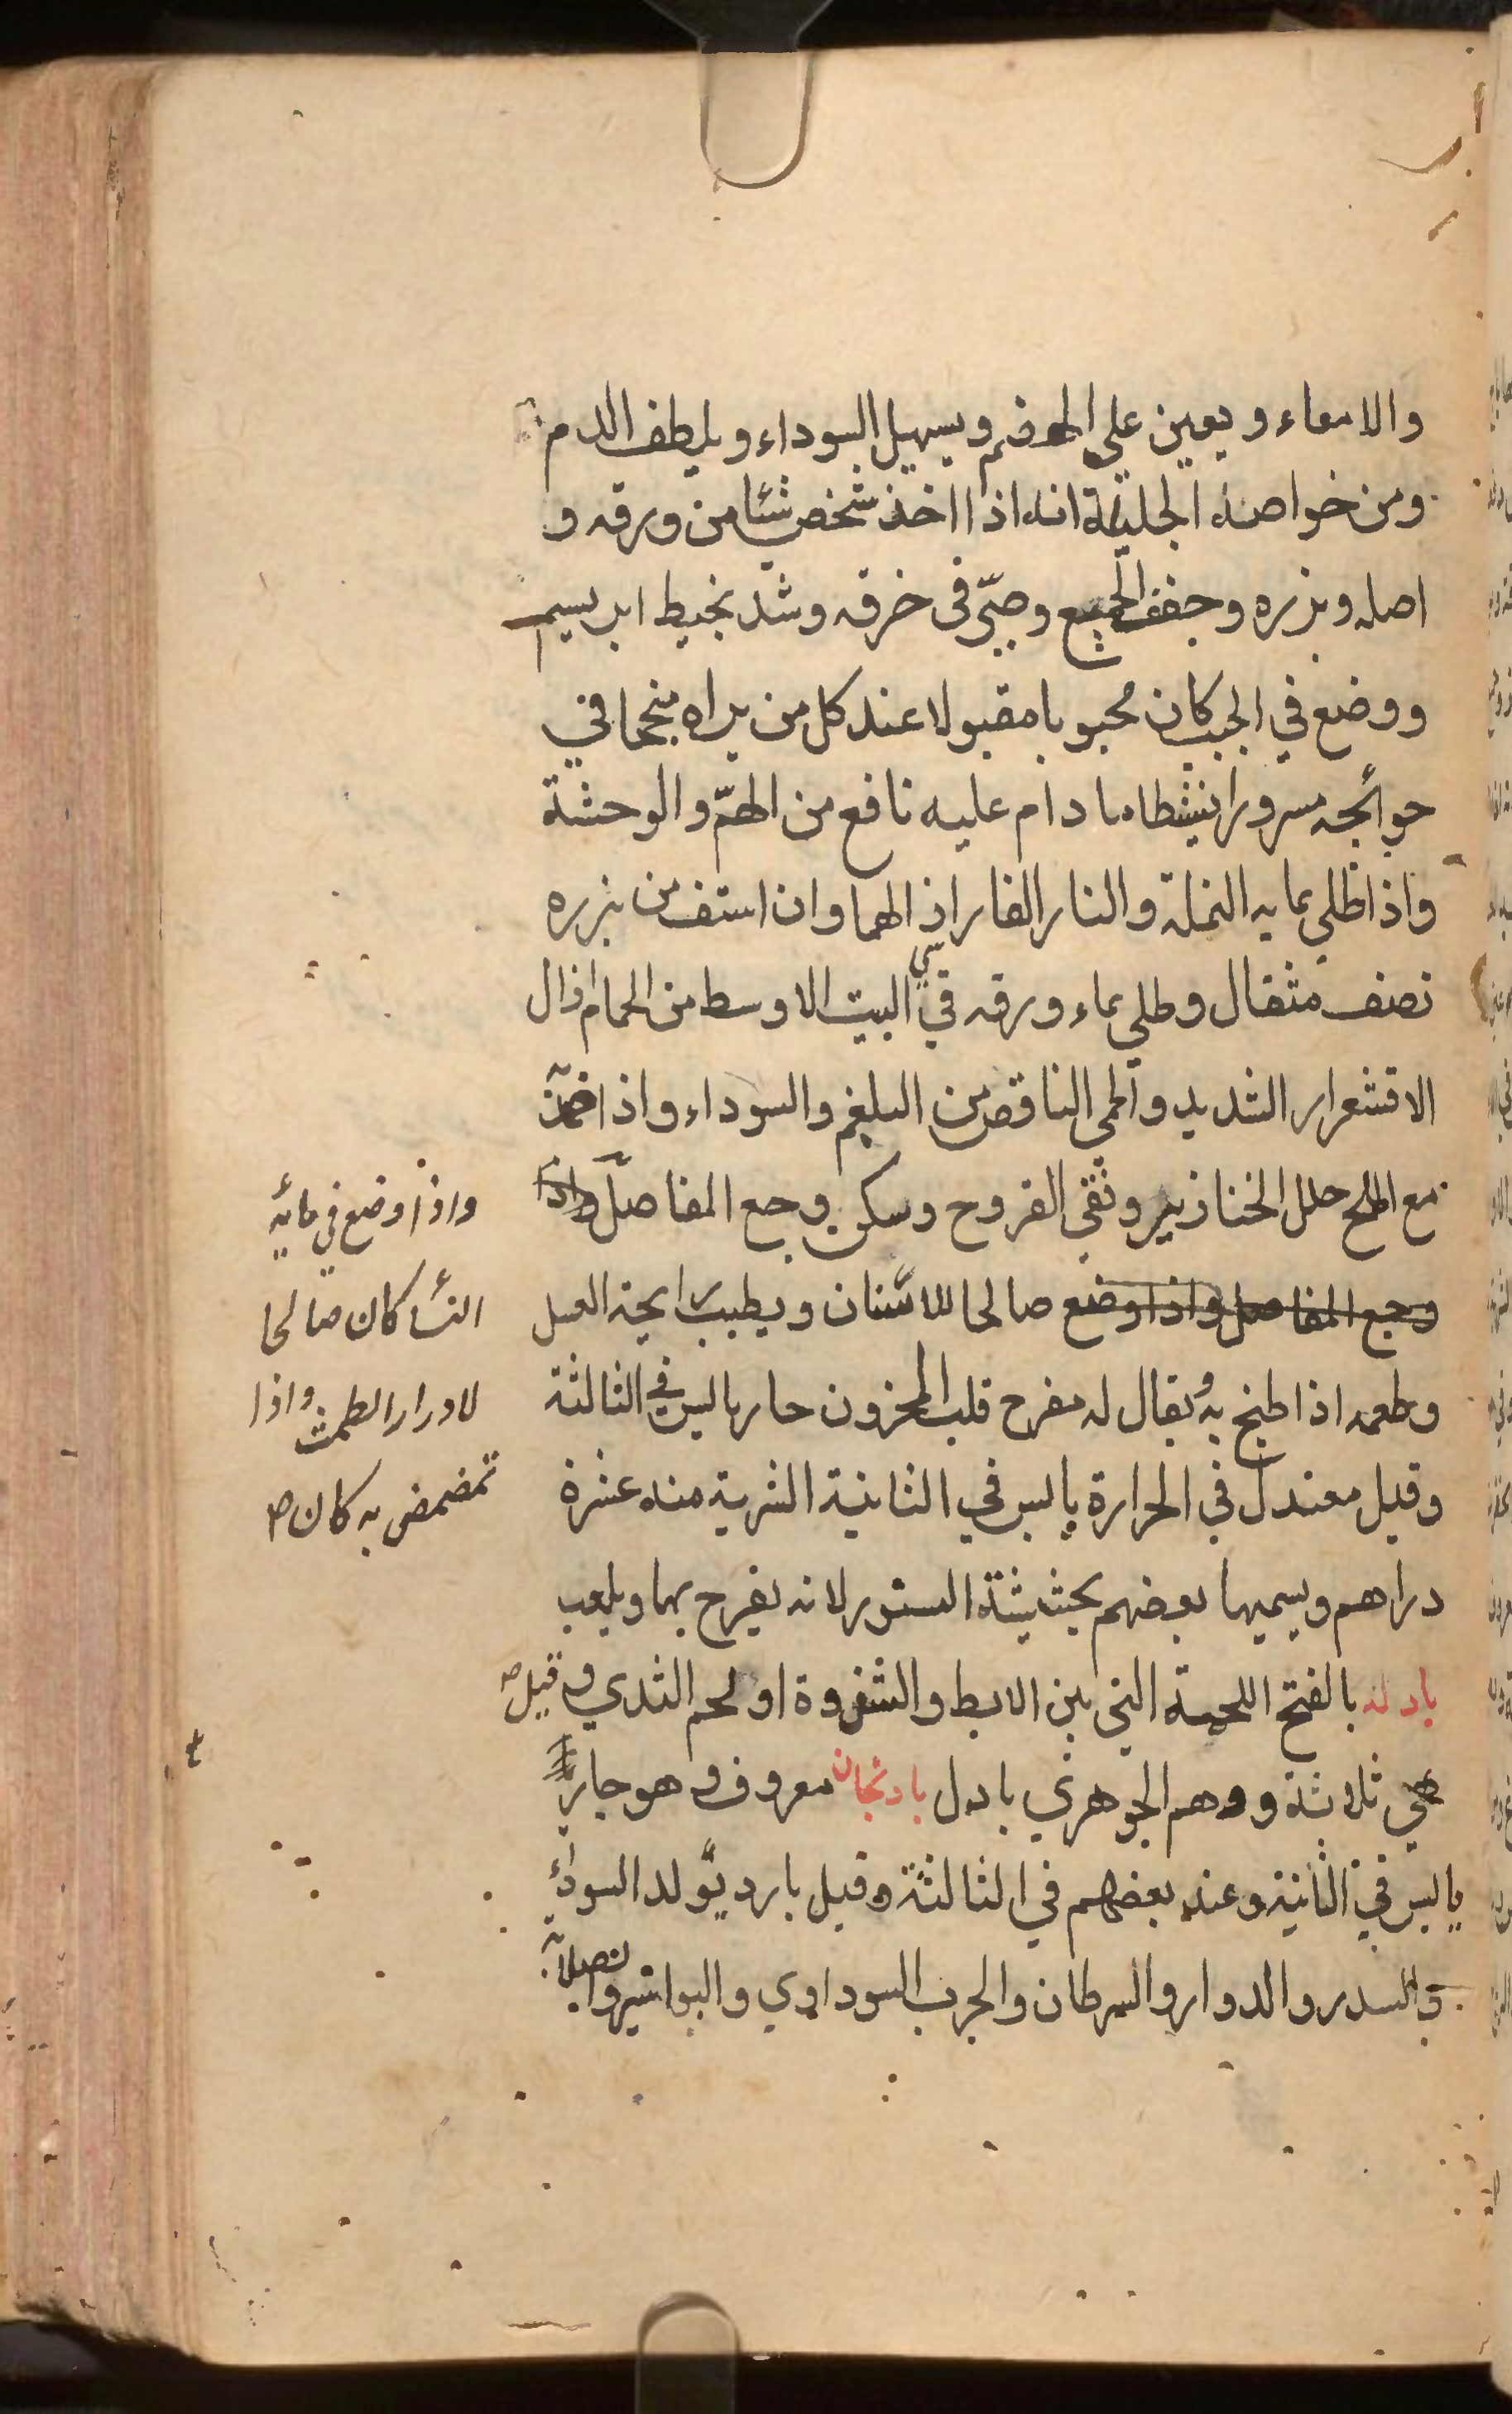 والامعاء ويعين علي الهضم ويسهيل السوداء ويلطف الدم
ومن خواصه الجليلة انه اذا اخذ شخص شئا من ورقه و
اصله وبزره وجفف الجميع وصيّ في خرقه وشد بخيط ابريسيم
ووضع في الجيب كان محبوبا مقبولا عند كل من يراه منجحا في
حوائجه مسرورا نشطا ما دام عليه نافع من الهمّ والوحشة
واذا طلي بمايه النملة والنار الفار اذ الهما وان استف من بزره
نصف مثقال وطلي بماء ورقه في البيت الاوسط من الحمام ازال
الاقشعرار الشديد والحمي الناقض من البلغم والسوداء واذا ضمد
مع الملح حلل الخنازير ونقي القروح وسكن وجع المفاصل واذا
وجع المفاصل واذا وضع صالحا للاسنان ويطيب رايحة العسل
وطعمه اذا طبخ به ويقال له مفرح قلب المحزون حار يابس في الثالثة
وقيل معتدل في الحرارة يابس في الثانية الشربة منه عشرة
دراهم ويسميها بعضهم بحشيشة السنور لانه يفرح بها ويلعب
بادلة بالفتح اللحمة التي بين الابط والثندوة او لحم الثدي وقيل
هي ثلاثة ووهم الجوهري بادل بادنجان معروف وهو حار
يابس في الثانية وعند بعضهم في الثالثة وقيل بارد يولد السوداء
والسدر والدوار والسرطان والجرب السوداوي والبواسير والصلابة
واذا وضع في مائه
النسا كان صالحا
لادرار الطمث واذا
تمضمض به كان